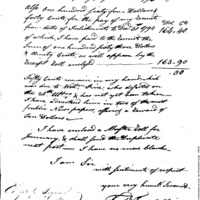 Also One hundred forty four Dollars
forty Cents for the pay of my recruits
from date of Inlistments to Dec 31 1790 164.40
of which I have paid to the recruits the
Sum of one hundred sixty three Dollars
& Ninety Cents, as will appear by the
receipt Roll enclosed 163.90
.50
Fifty Cents remain in my hands which
was due to who deserted on
the and has not yet been taken
I have advertised him in two of the most
public News papers, offering a reward of
Ten Dollars
I have enclosed a Muster Roll for
January, & shall send the duplicates
next post I have no more blanks
I am Sir
with sentiments of respect
your very humbl Servant